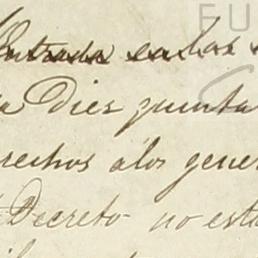 FU
Entrada en las
Diez quinta
rechos a los gener
Decreto no est